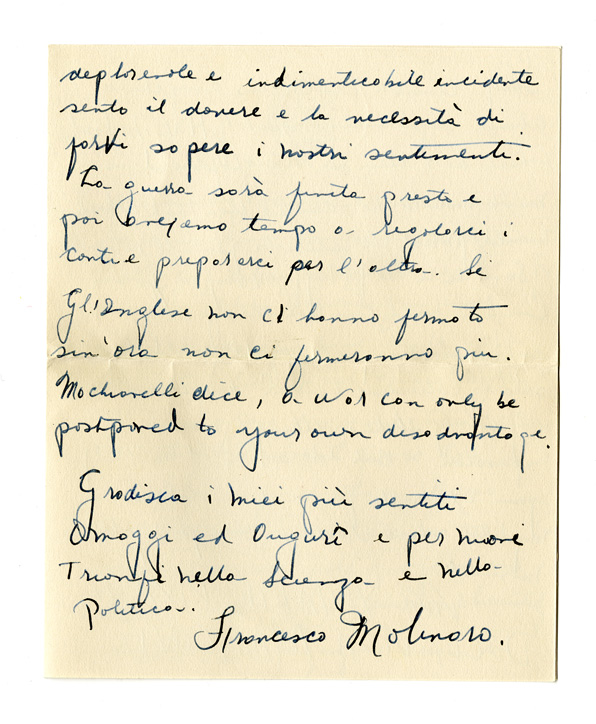 deplorevole e indimenticabile incidente
sento il dovere e la necessità di
farVi sapere i nostri sentimenti.
La guerra sarà finita presto e
poi avremo tempo a regolarci i
conti e prepararci per l'altra. Se
Gl'Inglese non ci hanno fermato
sin'ora non ci fermeranno piu.
Machiavelli dice, a war can only be
postponed to your own disadvantage.
Gradisca i miei più sentiti
Omaggi ed Auguri e per nuovi
Trionfi nella Scienza e nella
Politica.
Francesco Molinaro.